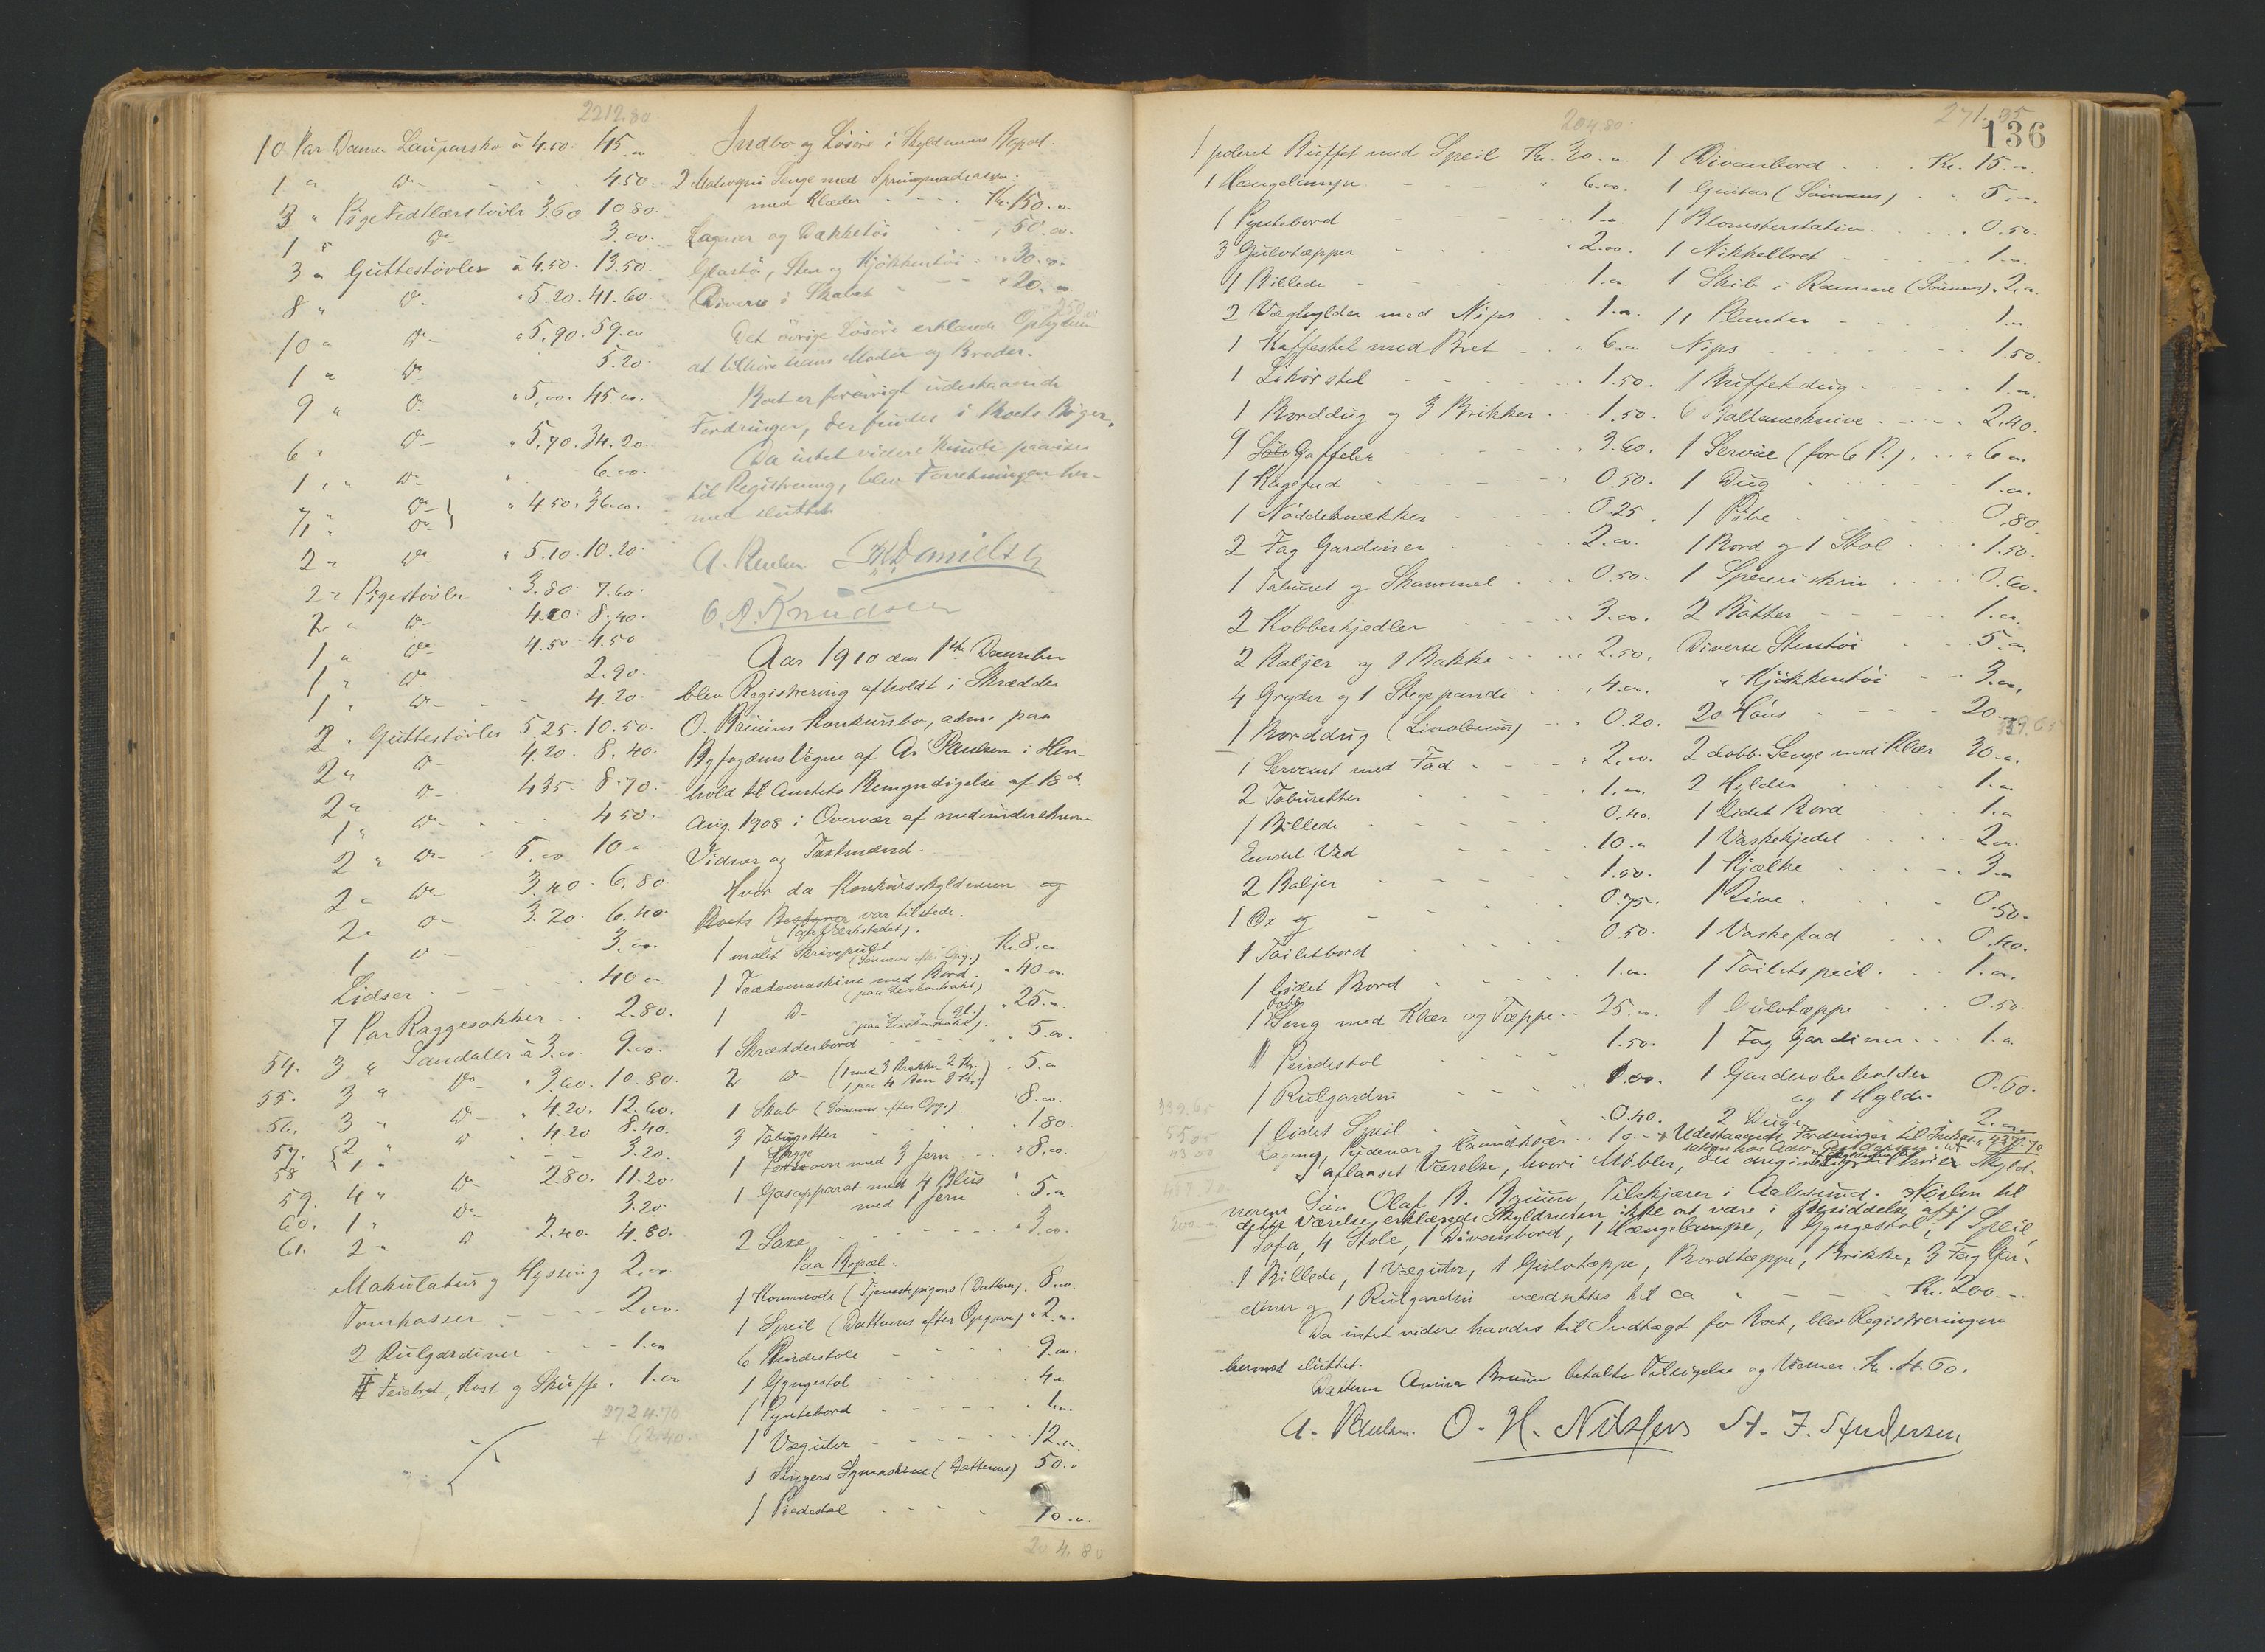 2212.80
10 Par Dame Lauparsko à 4.50. 45."
1 " Do - 4.50.
3 " Pige Fedtlærstøvler 3.60 10.80.
1 " Do 3.00.
3 " Guttestøvler à 4.50. 13.50.
8 " Do " 5.20. 41.60.
10 " Do " 5.90. 59.00
1 " Do 5.20.
9 " Do " 5.00. 45.00.
6 " Do " 5.70. 34.20.
1 " Do 6.00.
7 " Do
1 " Do } " 4.50. 36.00.
2 " Do " 5.10. 10.20.
2 " Pigestøvler 3.80. 7.60.
2 " Do 4.20. 8.40.
1 " Do 4.50 4.50
1 " Do 2.90.
1 " Do 4.20.
2 " Guttestøvler 5.25. 10.50.
2 " Do 4.20. 8.40.
2 " Do 4.35. 8.70.
1 " Do 4.50.
2 " Do 5.00 10."
2 " Do 3.40. 6.80
2 " Do 3.20. 6.40.
1 Do 3.00.
Lidser 40."
7 Par Raggesokker 2.80.
54. 3 " Sandaler à 3.00. 9.00.
55. 3 " Do " 3.60. 10.80.
56. 3 " Do " 4.20. 12.60.
57. 2 " Do " 4.20 8.40.
58 1 " 3.20.
59. 4 " Do 2.80. 11.20.
60. 1 " Do 3.20.
61. 2 " Do 2.40. 4.80.
Makulatur og Hyssing 2.00.
Tomkasser 2.00.
2 Rulgardiner 1.00
Feiebret, Kost og Skuffe. 1.00
2724.70
Indbo og Løsøre i Skyldnerens Bopæl.
2 Mahogni Senge med Springmadrasser
med Klæder Kr. 150.00.
Lagner og Dækketøi " 50.00.
Glastøi, Sten og Kjøkkentøi " 30.00.
Diverse i Skabet " 20.00.
250.00
Det øvrige Løsøre erklærede Opbyderen
at tilhøre hans Moder og Broder.
Boet er forøvrigt udestaaende
Fordringer, der findes i Boets Bøger.
Da intet videre kunde paavises
til Registrering, blev Forretningen her-
med sluttet
A. Paulsen K. Danielsen
O. A. Knudsen
Aar 1910 den 1ste December
blev Registrering afholdt i Skrædder
O. Bruuns Konkursbo, adm. paa
Byfogdens Vegne af A. Paulsen i Hen-
hold til Amtets Bemyndigelse af 18de
Aug. 1908 i Overvær af medunderskrevne
Vidner og Takstmænd.
Hvor da Konkursskyldneren og
Boets Bestyrer var tilstede.
(paa Værkstedet).
1 malet Skrivepult Kr. 8.00.
(Sønnens efter Opg.)
1 Trædemaskine med Bord. " 40.00.
(paa Leiekontrakt)
1 Do (gl.) " 25.00.
(paa Leiekontrakt).
1 Skrædderbord " 5.00.
2 Do (1 med 3 Krakke 2 Kr. 1 paa 4 Ben 3 Kr.) " 5."
1 Skab (Sønnens efter Opg.). " 8.00.
3 Taburetter 1.80.
1 Bygge ovn med 3 Jern " 8.00.
1 Gasapparat med 4 Blus
med 1 Jern " 5."
2 Saxe " 3.00.
Paa Bopæl.
1 Kommode (Tjenestepigens (Datteren). 8.00.
1 Speil (Datterens efter Opgave) " 2.00.
6 Pindestole 9.00.
1 Gyngestol 4."
1 Pyntebord 1.00.
1 Væguhr 12.00.
1 Singers Symaskine (Datterens) 50."
1 Piedestal 10.00.
204.80
204.80. 271.35
136
1 poleret Buffet med Speil Kr. 30.00.
1 Hængelampe " 6.00.
1 Pyntebord 1."
3 Gulvtæpper " 2.00.
1 Billede 1.00.
2 Væghylder med Nips 1.00.
1 Kaffestel med Bret " 6.00
1 Likørstel 1.50.
1 Borddug og 3 Brikker 1.50.
9 Sølv Gaffeler 3.60.
1 Kagefad 0.50.
1 Nøddeknækker 0.25
2 Fag Gardiner 2.00.
1 Taburet og Skammel 0.50.
2 Kobberkjedler 3.00.
2 Baljer og 1 Bakke 2.50.
4 Gryder og 1 Stegepande " 4.00.
1 Borddug (Linoleum) 0.20.
1 Servant med Fad " 2.00.
2 Taburetter 1.00.
1 Billede 0.40.
Endel Ved 10."
2 Baljer 1.50.
1 Øx og 0.75.
1 Toiletbord 0.50.
1 lidet Bord 1.00.
1 dobb. Seng med Klær og Tæppe 25.00.
1 Pindestol 1.50.
1 Rulgardin 1.00.
1 lidet Speil 0.40.
Lagner, Pudevar og Haandklær 10.-
1 Divanbord Kr. 15.00.
1 Guitar (Sønnens) " 5.00.
1 Blomsterstativ " 0.50.
1 Nikkelbret 1.00.
1 Skib i Ramme (Sønnens) " 2.00.
11 Planter 1.00.
Nips 1.50.
1 Buffetdug 1.00.
6 Ballanceknive 2.40.
1 Service (for 6 P.) " 6."
1 Dug 1.00.
1 Pibe 0.80.
1 Bord og 1 Stol 1.50.
1 Speceriskrin 0.60.
2 Bøtter 1.00.
Diverse Stentøi 5.00.
" Kjøkkentøi 3.00.
20 Høns 20."
339.65
2 dobb. Senge med Klær 30.00.
2 Hylder 1.00
1 lidet Bord 1.00
1 Vaskekjedel 2.00.
1 Kjælke 3."
1 Line 0.50.
1 Vaskefad 0.40.
1 Toiletspeil. 1.00.
1 Gulvtæppe 0.50.
1 Fag Gardiner 1.00.
1 Garderobeholder
og 1 Hylde 0.60.
2 Duge 2.00.
Udestaaende Fordringer til Inkas-
sation hos Adv. 437.70
I aflaaset Værelse, hvori Møbler, der angives tilhører Skyld-
nerens Søn Olaf B. Bruun, Tilskjærer i Aalesund. Nøglen til
dette Værelse erklærede Skyldneren ikke at være i Besiddelse af:
1 Sofa, 4 Stole, 1 Divansbord, 1 Hængelampe, 1 Gyngestol, 1 Speil,
1 Billede, 1 Væguhr, 1 Gulvtæppe, Bordtæppe, Brikke, 3 Fag Gar-
diner og 1 Rulgardin værdsættes til ca Kr. 200.-.
Da intet videre havdes til Indtægt for Boet, blev Registreringen
hermed sluttet.
Datteren Anna Bruun betalte Tilsigelse og Vidner Kr. 4.60.
A. Paulsen. O. H. Nilssen St. J. Andersen